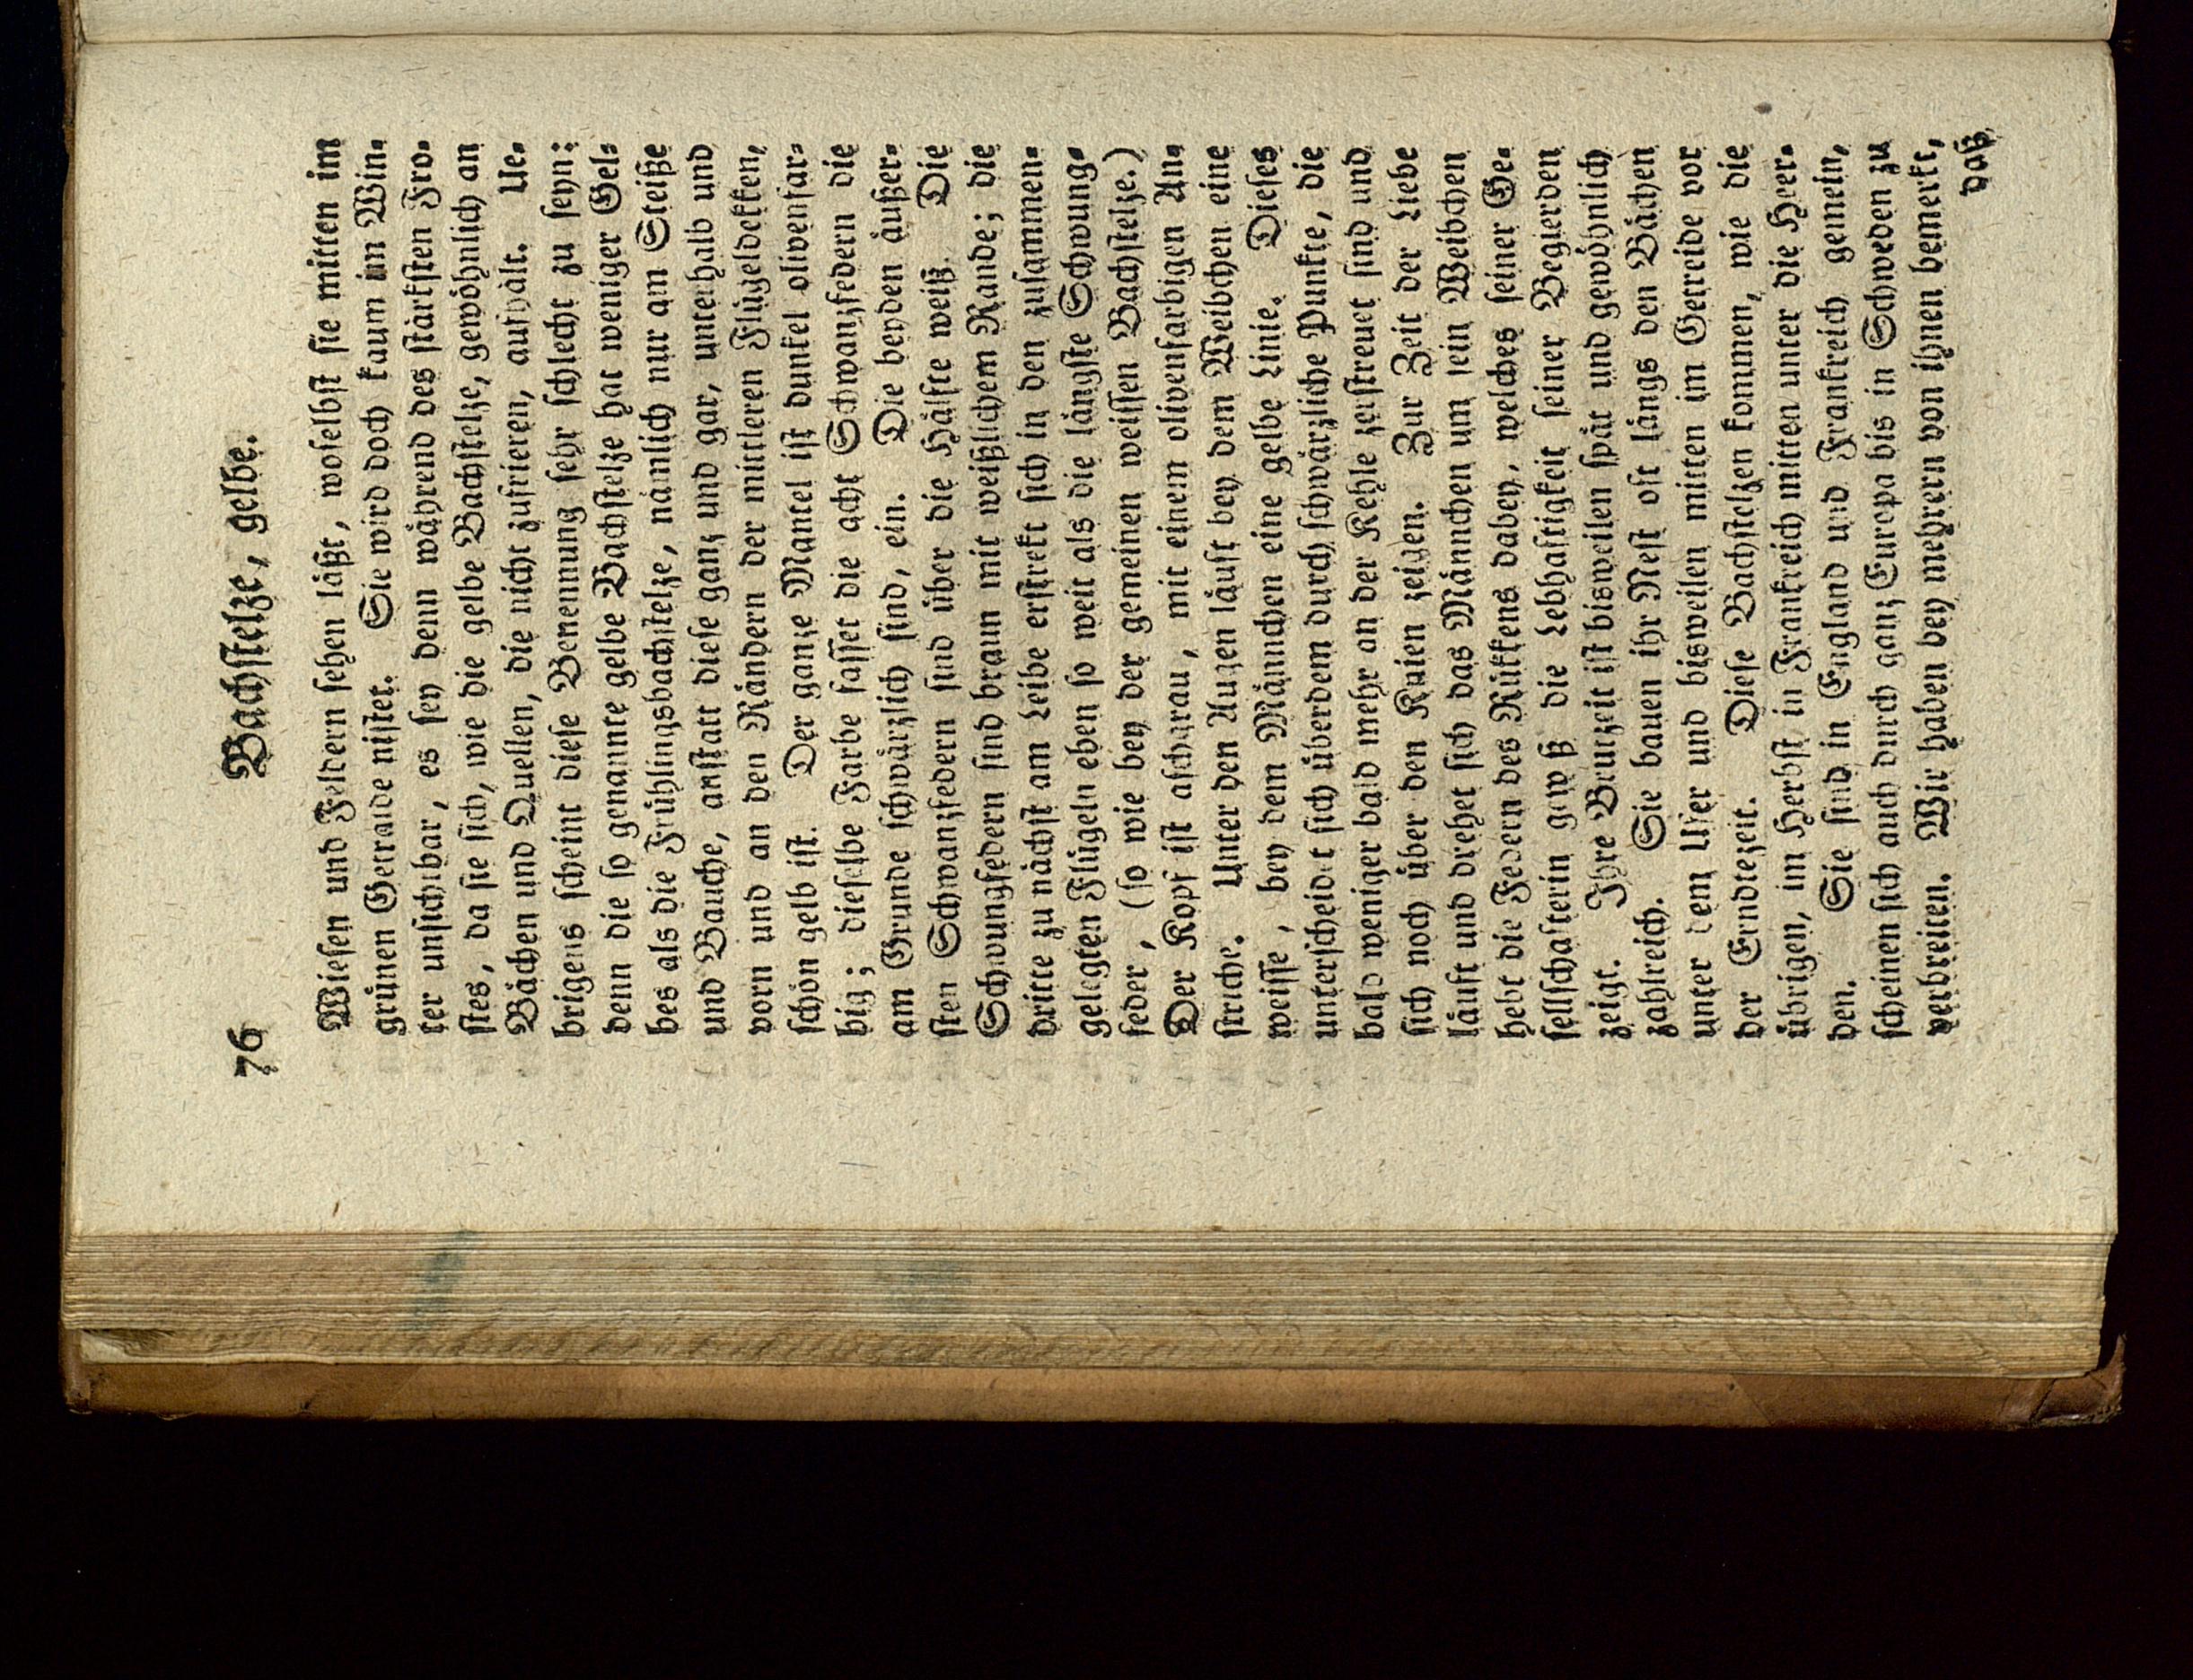 76 Bachſtelze, gelbe.
Wieſen und Feldern ſehen läßt, woſelbſt ſie mitten im
grünen Getraide niſtet. Sie wird doch kaum im Win-
ter unſichtbar, es ſey denn während des ſtärkſten Fro-
ſtes, da ſie ſich, wie die gelbe Bachſtelze, gewöhnlich an
Bächen und Quellen, die nicht zufrieren, aufhält. Ue-
brigens ſcheint dieſe Benennung ſehr ſchlecht zu ſeyn:
denn die ſo genannte gelbe Bachſtelze hat weniger Gel-
bes als die Frühlingsbachſtelze, nämlich nur am Steiße
und Bauche, anſtatt dieſe ganz und gar, unterhalb und
vorn und an den Rändern der mittleren Flügeldekken,
ſchön gelb iſt. Der ganze Mantel iſt dunkel olivenfar-
big; dieſelbe Farbe faſſet die acht Schwanzfedern die
am Grunde ſchwärzlich ſind, ein. Die beyden äußer-
ſten Schwanzfedern ſind über die Hälfte weiß. Die
Schwungfedern ſind braun mit weißlichem Rande; die
dritte zu nächſt am Leibe erſtrekt ſich in den zuſammen-
gelegten Flügeln eben ſo weit als die längſte Schwung-
feder, (ſo wie bey der gemeinen weiſſen Bachſtelze.)
Der Kopf iſt aſchgrau, mit einem olivenfarbigen An-
ſtriche. Unter den Augen läuft bey dem Weibchen eine
weiſſe, bey dem Männchen eine gelbe Linie. Dieſes
unterſcheidet ſich überdem durch ſchwärzliche Punkte, die
bald weniger bald mehr an der Kehle zerſtreuet ſind und
ſich noch über den Knien zeigen. Zur Zeit der Liebe
läuft und drehet ſich das Männchen um ſein Weibchen
hebt die Federn des Rükkens dabey, welches ſeiner Ge-
ſellſchafterin gewiß die Lebhaftigkeit ſeiner Begierden
zeigt. Ihre Brutzeit iſt bisweilen ſpät und gewöhnlich
zahlreich. Sie bauen ihr Neſt oft längs den Bächen
unter dem Ufer und bisweilen mitten im Getreide vor
der Erndtezeit. Dieſe Bachſtelzen kommen, wie die
übrigen, im Herbſt in Frankreich mitten unter die Heer-
den. Sie ſind in England und Frankreich gemein,
ſcheinen ſich auch durch ganz Europa bis in Schweden zu
verbreiten. Wir haben bey mehrern von ihnen bemerkt,
daß